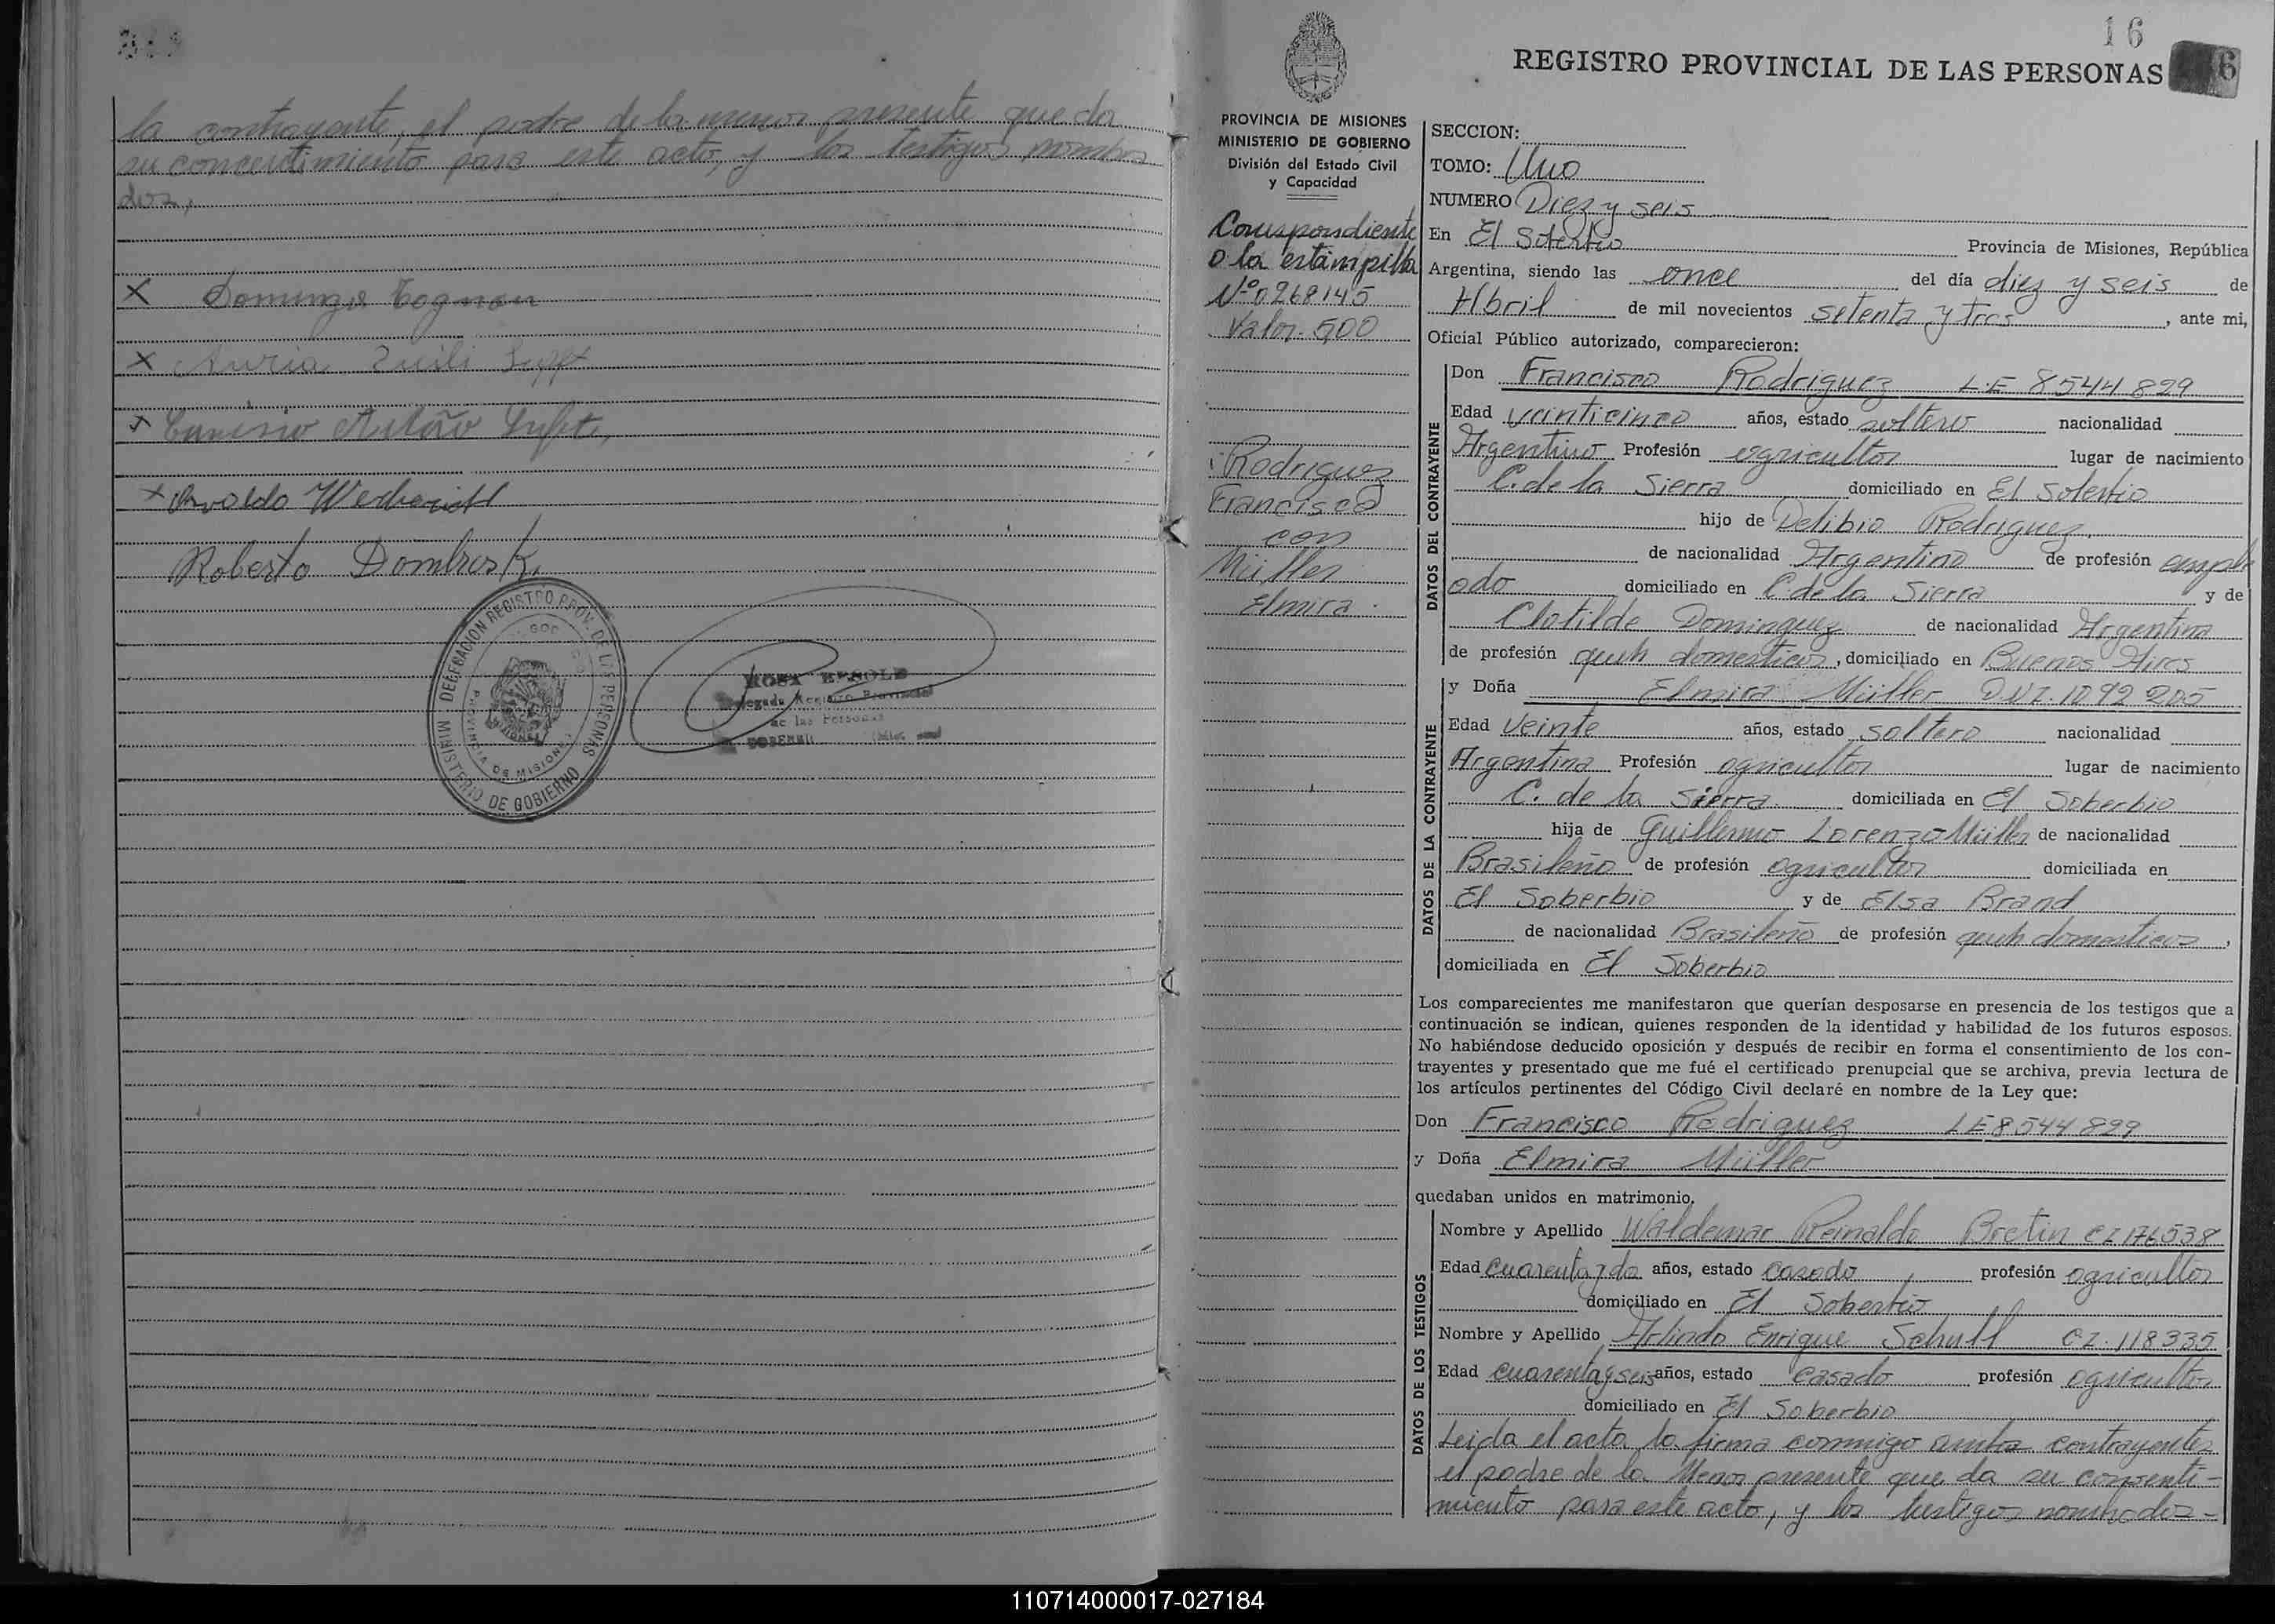 la contrayente, el padre de la menor presente que da
su concentimiento para este acto, y los testigos nombra
dos,
X Domingo
X Zuili
X
X Osvaldo
Roberto Dombroski
DELEGACION REGISTRO PROV. DE LAS PERSONAS
MINISTERIO DE GOBIERNO
PROVINCIA DE MISIONES
ROSA
Delegada Registro Provincial
de las Personas
16
REGISTRO PROVINCIAL DE LAS PERSONAS
6
PROVINCIA DE MISIONES
MINISTERIO DE GOBIERNO
División del Estado Civil
y Capacidad
Correspondiente
a la estampilla
Nº 0268145
Valor. 500
Rodriguez
Francisco
con
Müller
Elmira.
SECCION:
TOMO: Uno
NUMERO Diez y seis
En El Soberbio Provincia de Misiones, República
Argentina, siendo las once del día diez y seis de
Abril de mil novecientos setenta y tres, ante mi,
Oficial Público autorizado, comparecieron:
DATOS DEL CONTRAYENTE
Don Francisco Rodriguez L.E 8544899
Edad veinticinco años, estado soltero nacionalidad
Argentino Profesión agricultor lugar de nacimiento
C. de la Sierra domiciliado en El Soberbio
hijo de Delibio Rodriguez
de nacionalidad Argentino de profesión emple
ado domiciliado en C. de la Sierra y de
Clotilde Dominguez de nacionalidad Argentina
de profesión queh domesticos, domiciliado en Buenos Aires
DATOS DE LA CONTRAYENTE
y Doña Elmira Müller D.N.I. 10.92 205
Edad veinte años, estado soltera nacionalidad
Argentina Profesión agricultor lugar de nacimiento
C. de la Sierra domiciliada en El Soberbio
hija de Guillermo Lorenzo Müller de nacionalidad
Brasileño de profesión agricultor domiciliada en
El Soberbio y de Elsa Brand
de nacionalidad Brasileño de profesión queh domesticos,
domiciliada en El Soberbio
Los comparecientes me manifestaron que querían desposarse en presencia de los testigos que a
continuación se indican, quienes responden de la identidad y habilidad de los futuros esposos.
No habiéndose deducido oposición y después de recibir en forma el consentimiento de los con-
trayentes y presentado que me fué el certificado prenupcial que se archiva, previa lectura de
los artículos pertinentes del Código Civil declaré en nombre de la Ley que:
Don Francisco Rodriguez LE 8544899
y Doña Elmira Müller
quedaban unidos en matrimonio.
DATOS DE LOS TESTIGOS
Nombre y Apellido Waldemar Reinaldo Bretin CI 176538
Edad cuarenta y do años, estado casado profesión agricultor
domiciliado en El Soberbio
Nombre y Apellido Arlindo Enrique Schull CI. 118335
Edad cuarenta y seis años, estado casado profesión agricultor
domiciliado en El Soberbio
Leida el acta la firma conmigo ambos contrayentes
el padre de la Menor presente que da su consenti-
miento para este acto, y los testigos nombrados-
110714000017-027184